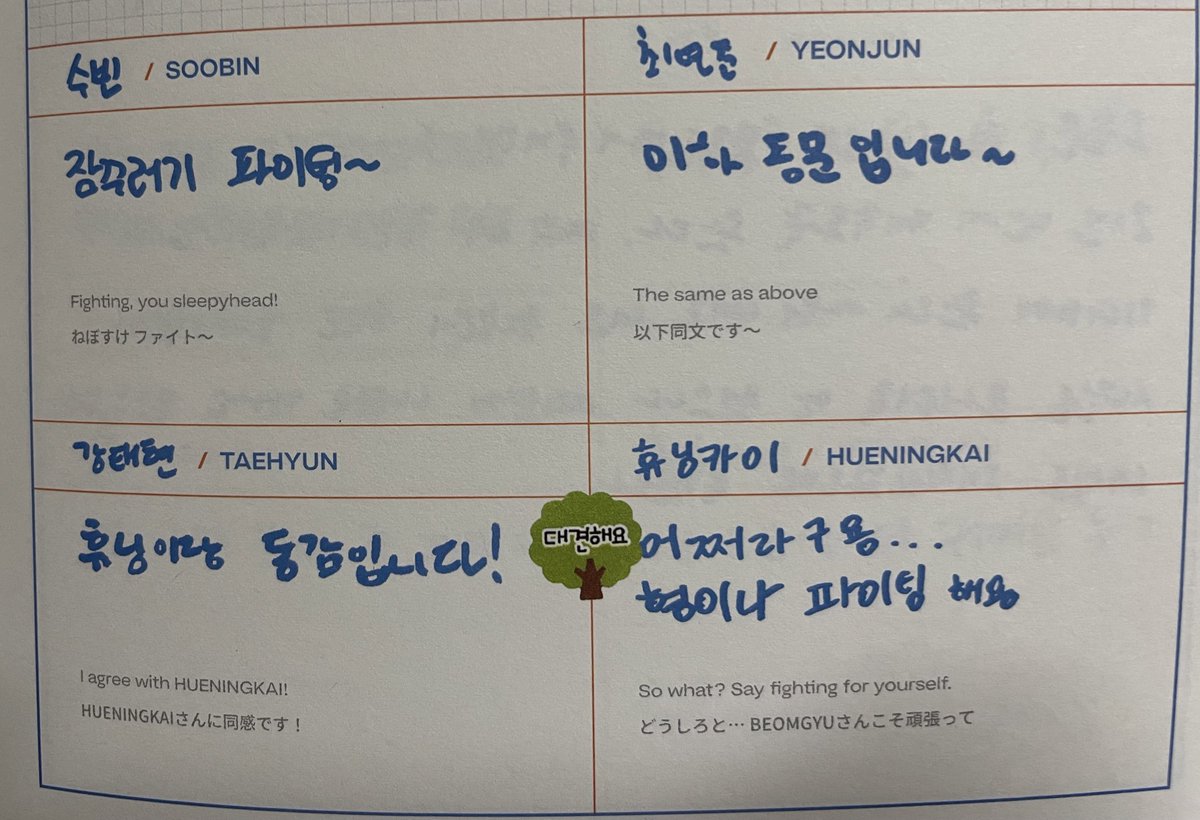 수빈 / SOOBIN
잠꾸러기 파이팅~
Fighting, you sleepyhead!
ねぼすけ ファイト～
최연준 / YEONJUN
이하 동문입니다~
The same as above
以下同文です～
강태현 / TAEHYUN
휴닝이랑 동감입니다!
I agree with HUENINGKAI!
HUENINGKAIさんに同感です！
대견해요
휴닝카이 / HUENINGKAI
어쩌라구용...
형이나 파이팅 해용
So what? Say fighting for yourself.
どうしろと… BEOMGYUさんこそ頑張って